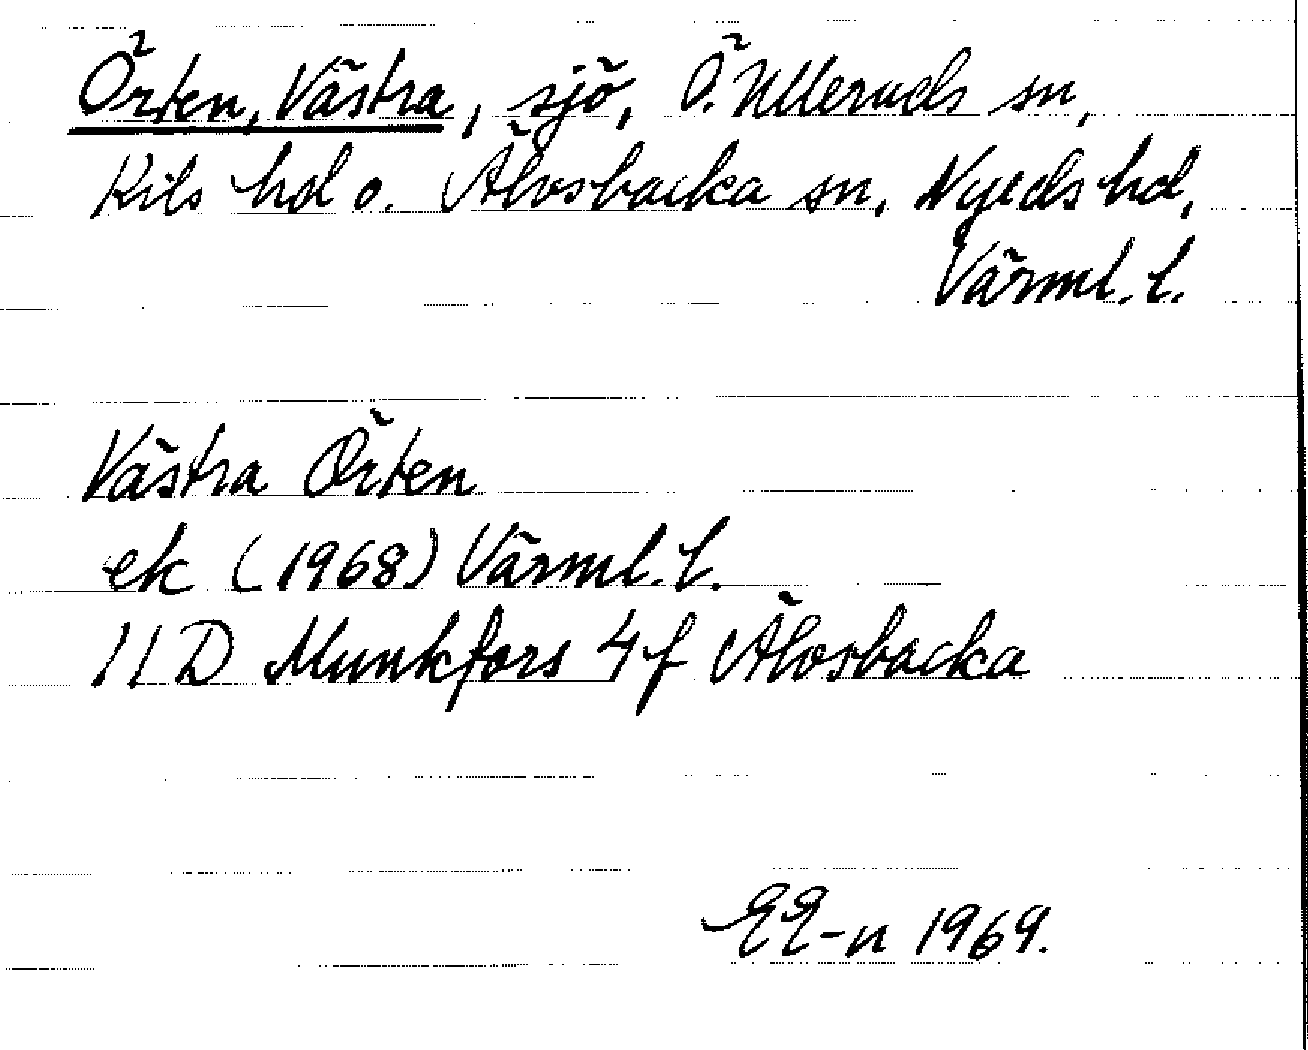 Örten, Västra, sjö, Ö. Ulleruds sn,
Kils hd o. Älvsbacka sn, Nyeds hd,
Värml. l.
Västra Örten
ek (1968) Värml. l.
11D Munkfors 4f Älvsbacka
EE-n 1969.